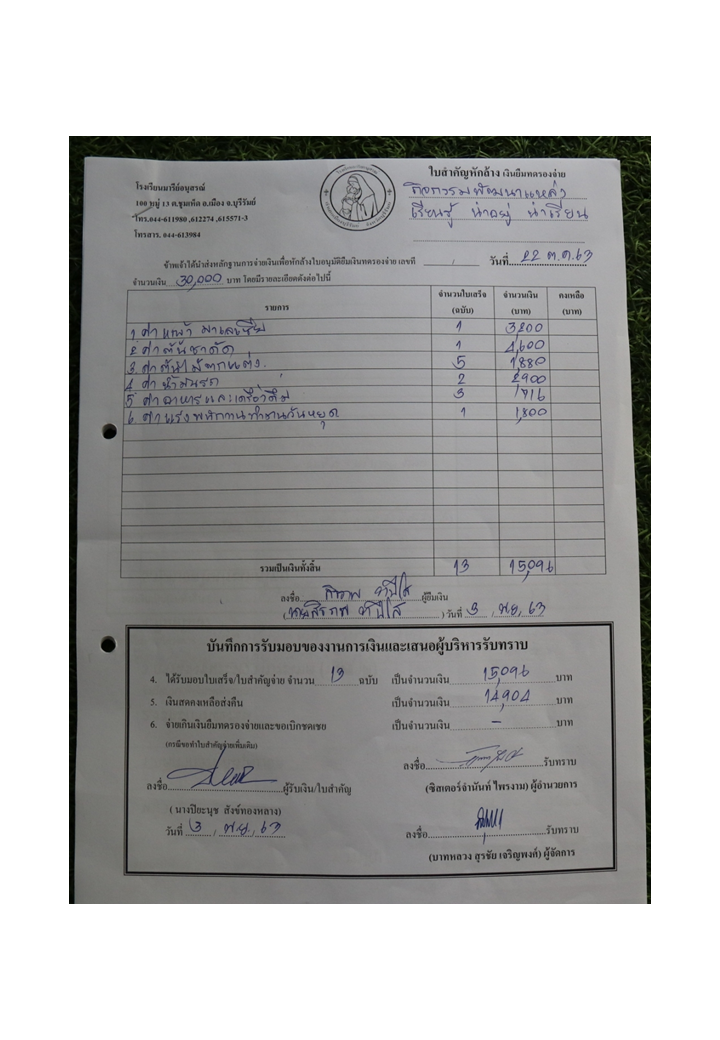 โรงเรียนมารีย์อนุสรณ์
100 หมู่ 13 ต.ชุมเห็ด อ.เมือง จ.บุรีรัมย์
โทร.044-611980 ,612274 ,615571-3
โทรสาร. 044-613984
ใบสำคัญหักล้าง เงินยืมทดรองจ่าย
กิจกรรมพัฒนาแหล่ง
เรียนรู้ น่าอยู่ น่าเรียน
วันที่ 22 ต.ค. 63
ข้าพเจ้าได้นำส่งหลักฐานการจ่ายเงินเพื่อหักล้างใบอนุมัติยืมเงินทดรองจ่าย เลขที่
จำนวนเงิน 30,000 บาท โดยมีรายละเอียดดังต่อไปนี้
รายการ จำนวนใบเสร็จ (ฉบับ) จำนวนเงิน (บาท) คงเหลือ (บาท)
1. ค่าหญ้ามาเลเซีย 1 3200
2. ค่าต้นชาดัด 1 4,600
3. ค่าต้นไม้ตกแต่ง 5 1,880
4. ค่า 2 2900
5. ค่าอาหารและเครื่องดื่ม 3 1716
6. ค่าแรงพนักงานทำงานวันหยุด 1 1,800
รวมเป็นเงินทั้งสิ้น 13 15,096
ลงชื่อ ผู้ยืมเงิน
( ) วันที่ 3 พ.ย. 63
บันทึกการรับมอบของงานการเงินและเสนอผู้บริหารรับทราบ
4. ได้รับมอบใบเสร็จ/ใบสำคัญจ่าย จำนวน 13 ฉบับ เป็นจำนวนเงิน 15,096 บาท
5. เงินสดคงเหลือส่งคืน เป็นจำนวนเงิน 14,904 บาท
6. จ่ายเกินเงินยืมทดรองจ่ายและขอเบิกชดเชย เป็นจำนวนเงิน - บาท
(กรณีขอทำใบสำคัญจ่ายเพิ่มเติม)
ลงชื่อ ผู้รับเงิน/ใบสำคัญ
ลงชื่อ รับทราบ
(ซิสเตอร์จำนันท์ ไพรงาม) ผู้อำนวยการ
( นางปิยะนุช สังข์ทองหลาง)
วันที่ 3 พ.ย. 63
ลงชื่อ รับทราบ
(บาทหลวง สุรชัย เจริญพงศ์) ผู้จัดการ